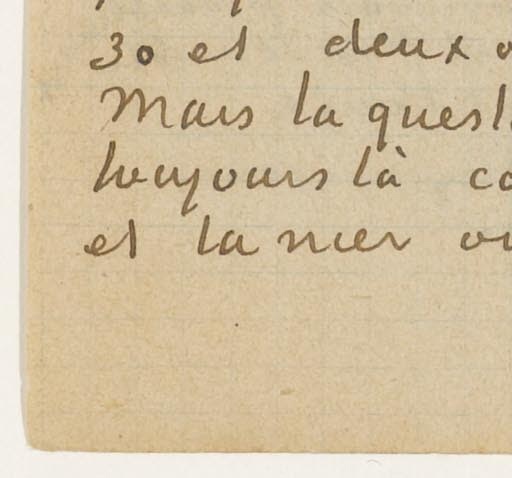 30 et deux
Mais la quest
toujours là co
et la mer ou